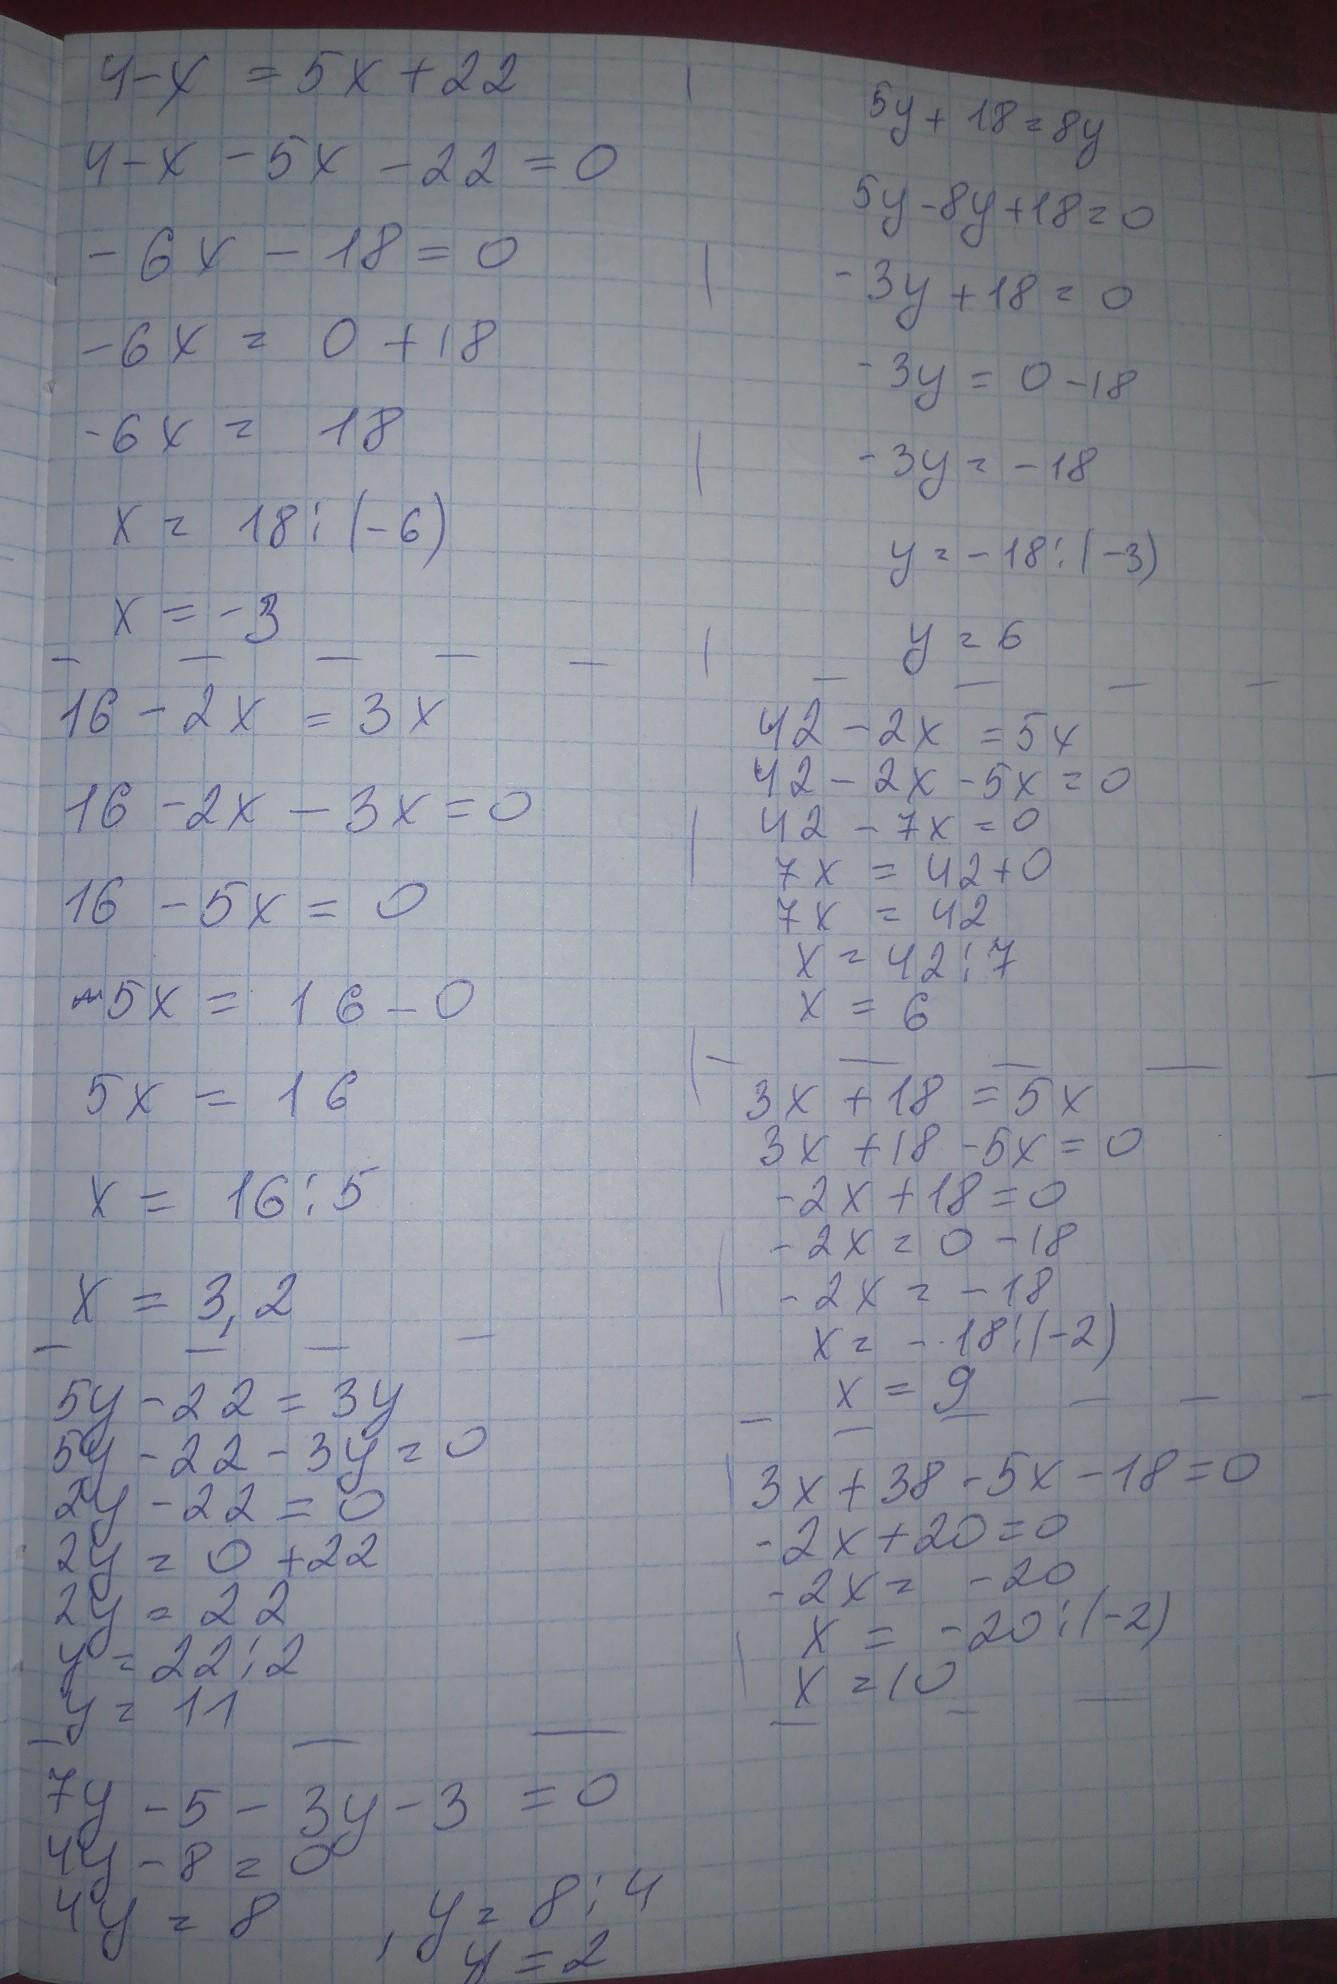 4-x = 5x+22
4-x -5x -22 = 0
-6x - 18 = 0
-6x = 0 +18
-6x = 18
x = 18:(-6)
x = -3
16-2x = 3x
16 -2x - 3x = 0
16 -5x = 0
5x = 16-0
5x = 16
x = 16:5
x = 3,2
5y-22 = 3y
5y -22 -3y = 0
2y -22 = 0
2y = 0 +22
2y = 22
y = 22:2
y = 11
7y -5 - 3y-3 = 0
4y - 8 = 0
4y = 8 , y = 8:4
y = 2
5y+18=8y
5y-8y+18=0
-3y+18=0
-3y = 0-18
-3y = -18
y = -18:(-3)
y = 6
42-2x = 5x
42-2x-5x=0
42 - 7x = 0
7x = 42+0
7x = 42
x = 42:7
x = 6
3x +18 = 5x
3x +18 -5x = 0
-2x+18=0
-2x = 0 -18
-2x = -18
x = -18:(-2)
x = 9
3x+38-5x-18=0
-2x+20=0
-2x = -20
x = -20:(-2)
x = 10